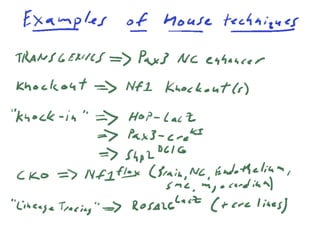 Examples of Mouse techniques
TRANSGENICS => Pax3 NC enhancer
Knockout => Nf1 Knockout(s)
"Knock-in" => HOP-LacZ
=> Pax3-cre^KI
=> Shp2^DC/G
CKO => Nf1^flox (Brain, NC, Endothelium,
SMC, myocardium)
"Lineage Tracing" => ROSA26^LacZ (+ cre lines)